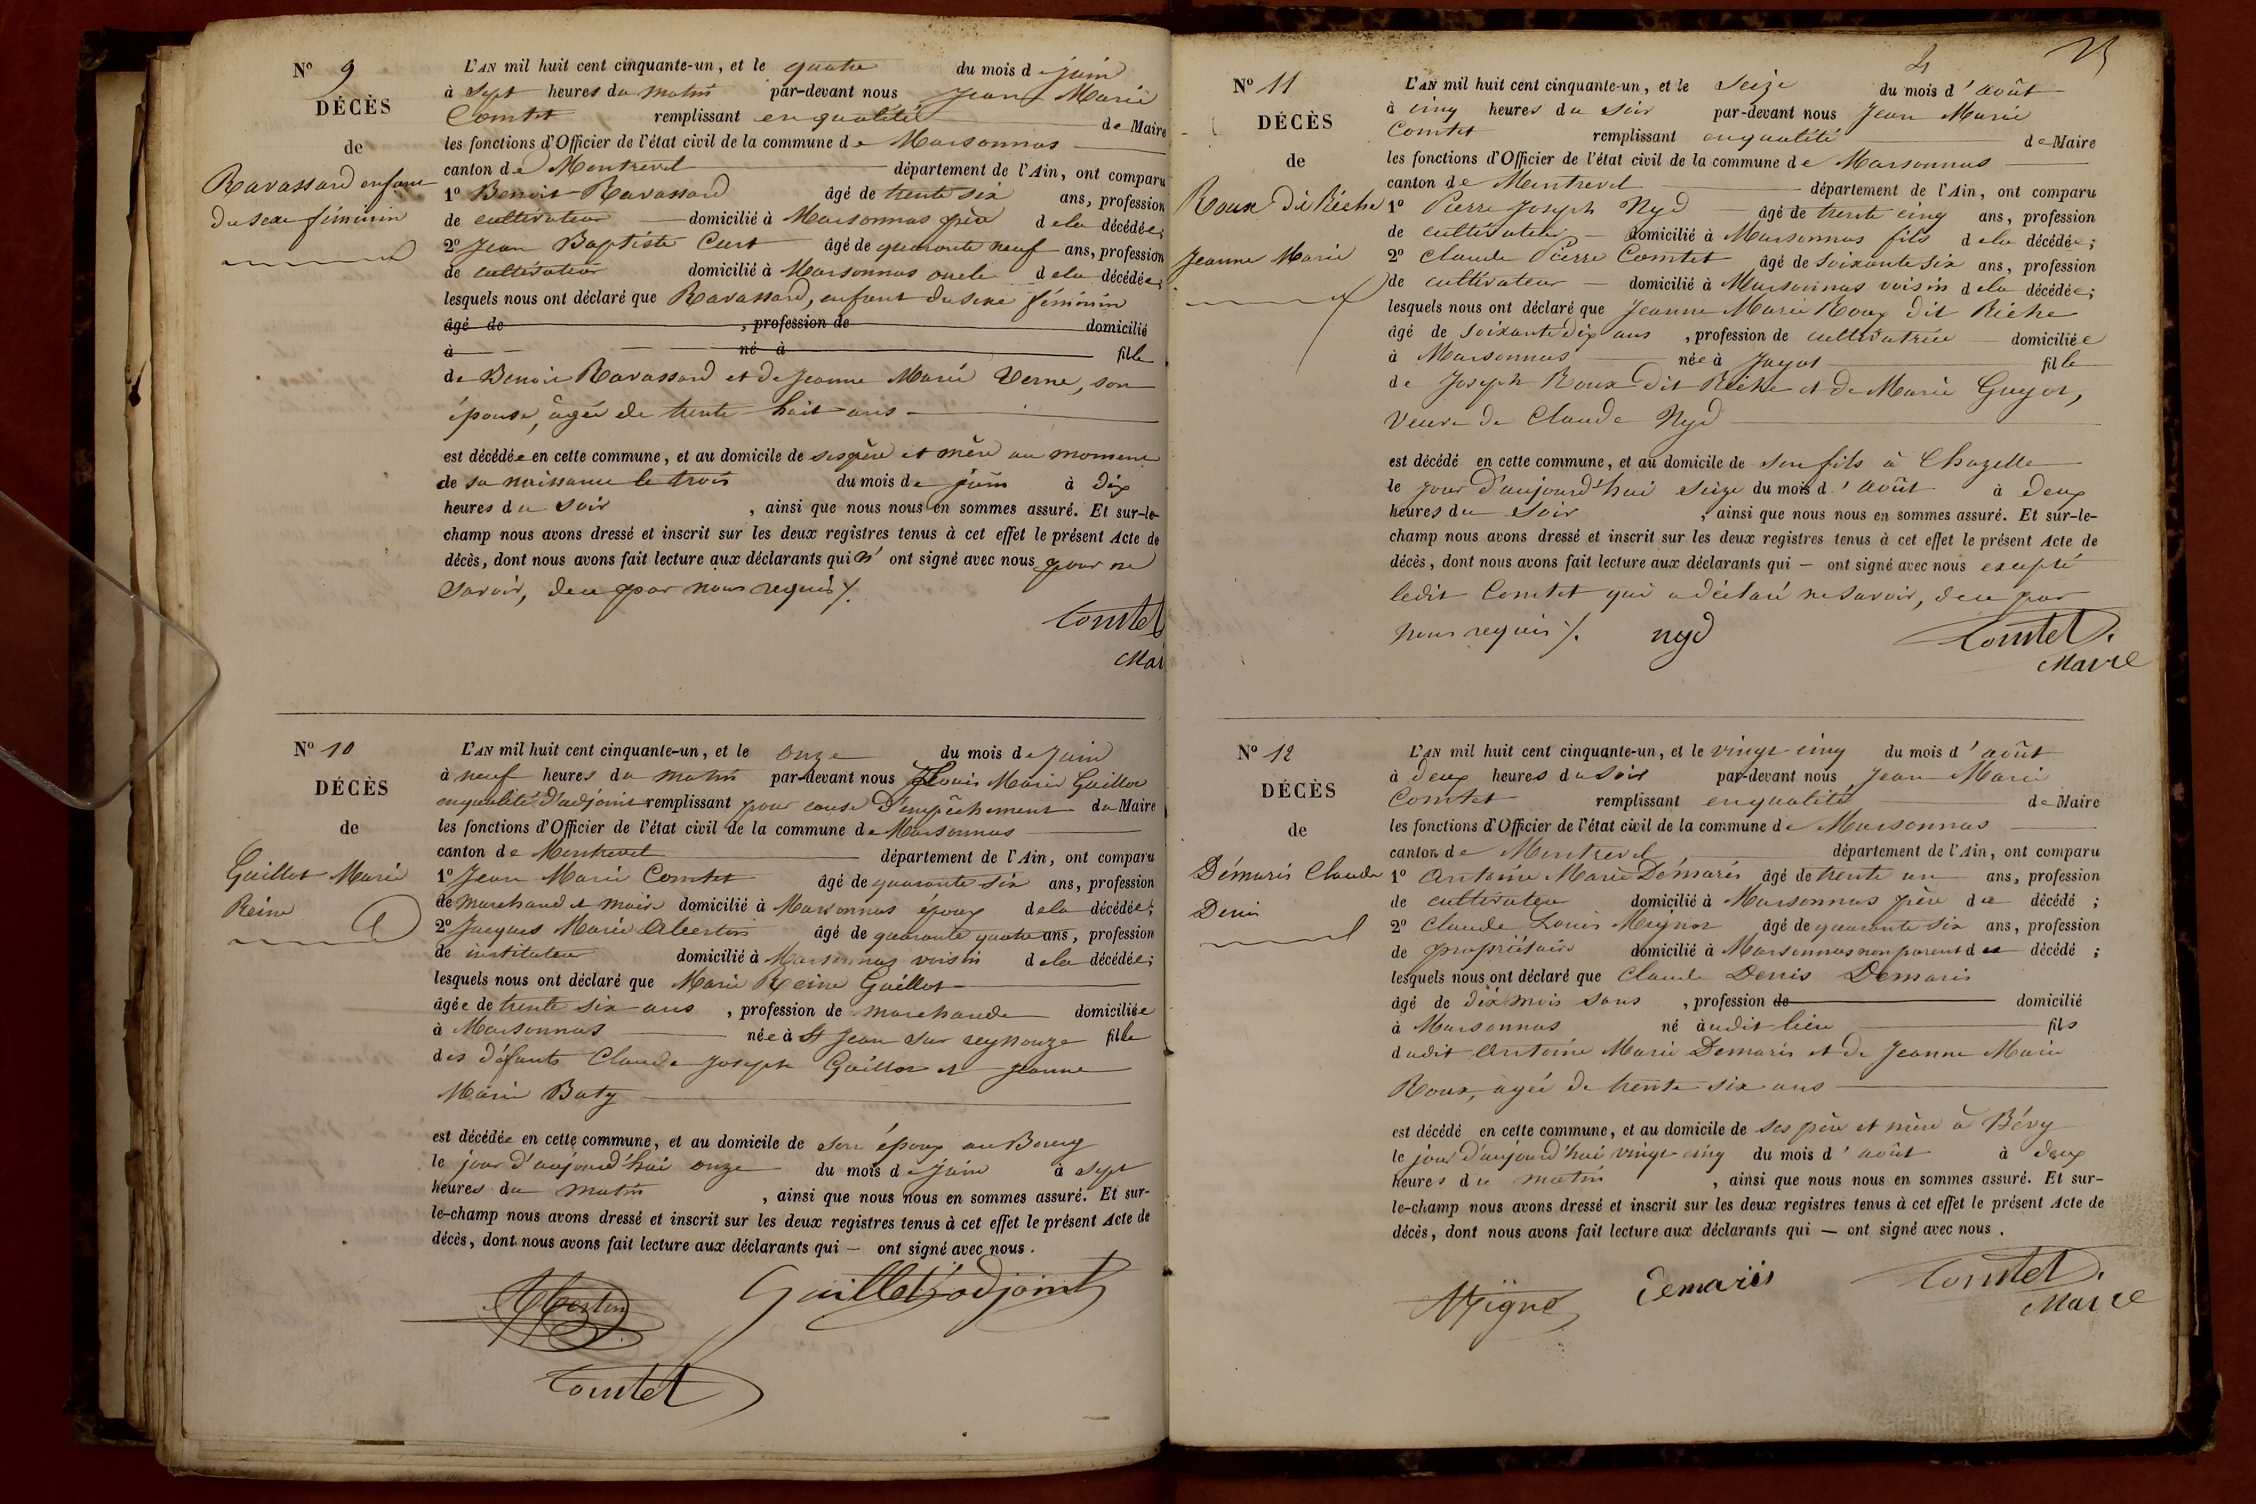 N° 9
DÉCÈS
de
Ravassard enfant
du sexe féminin
L'AN mil huit cent cinquante-un, et le quatre du mois de juin
à sept heures du matin par-devant nous Jean Marie
Comtet remplissant en qualité de Maire
les fonctions d'Officier de l'état civil de la commune de Marsonnas
canton de Montrevel département de l'Ain, ont comparu
1° Benoit Ravassard âgé de trente six ans, profession
de cultivateur domicilié à Marsonnas père de la décédée;
2° Jean Baptiste Curt âgé de quarante neuf ans, profession
de cultivateur domicilié à Marsonnas oncle de la décédée;
lesquels nous ont déclaré que Ravassard, enfant du sexe féminin
âgé de , profession de domicilié
à né à fille
de Benoit Ravassard et de Jeanne Marie Verne, son
épouse, âgée de trente huit ans
est décédée en cette commune, et au domicile de ses père et mère au moment
de sa naissance le trois du mois de juin à dix
heures du soir , ainsi que nous nous en sommes assuré. Et sur-le-
champ nous avons dressé et inscrit sur les deux registres tenus à cet effet le présent Acte de
décès, dont nous avons fait lecture aux déclarants qui n'ont signé avec nous pour ne
savoir, de ce par nous requis ⁒.
Comtet
Mai
N° 10
DÉCÈS
de
Guillot Marie
Reine
L'AN mil huit cent cinquante-un, et le onze du mois de juin
à neuf heures du matin par-devant nous Louis Marie Guillot
en qualité d'adjoint remplissant pour cause d'empêchement du Maire
les fonctions d'Officier de l'état civil de la commune de Marsonnas
canton de Montrevel département de l'Ain, ont comparu
1° Jean Marie Comtet âgé de quarante six ans, profession
de marchand et maire domicilié à Marsonnas époux de la décédée;
2° Jacques Marie Alberton âgé de quarante quatre ans, profession
de instituteur domicilié à Marsonnas voisin de la décédée;
lesquels nous ont déclaré que Marie Reine Guillot
âgée de trente six ans , profession de marchande domiciliée
à Marsonnas née à St Jean sur reyssouze fille
des défunts Claude Joseph Guillot et Jeanne
Marie Baty
est décédée en cette commune, et au domicile de son époux au Bourg
le jour d'aujourd'hui onze du mois de juin à sept
heures du matin , ainsi que nous nous en sommes assuré. Et sur-
le-champ nous avons dressé et inscrit sur les deux registres tenus à cet effet le présent Acte de
décès, dont nous avons fait lecture aux déclarants qui — ont signé avec nous.
Alberton Guillot adjoint
Comtet
N° 11
DÉCÈS
de
Roux dit Riche
Jeanne Marie
L'AN mil huit cent cinquante-un, et le seize du mois d'août
à cinq heures du soir par-devant nous Jean Marie
Comtet remplissant en qualité de Maire
les fonctions d'Officier de l'état civil de la commune de Marsonnas
canton de Montrevel département de l'Ain, ont comparu
1° Pierre Joseph Nyd âgé de trente cinq ans, profession
de cultivateur domicilié à Marsonnas fils de la décédée;
2° Claude Pierre Comtet âgé de soixante six ans, profession
de cultivateur domicilié à Marsonnas voisin de la décédée;
lesquels nous ont déclaré que Jeanne Marie Roux dit Riche
âgé de soixante dix ans , profession de cultivatrice domiciliée
à Marsonnas née à Jayat fille
de Joseph Roux dit Riche et de Marie Guyot,
veuve de Claude Nyd
est décédé en cette commune, et au domicile de son fils à Chazelle
le jour d'aujourd'hui seize du mois d'août à deux
heures du soir , ainsi que nous nous en sommes assuré. Et sur-le-
champ nous avons dressé et inscrit sur les deux registres tenus à cet effet le présent Acte de
décès, dont nous avons fait lecture aux déclarants qui — ont signé avec nous excepté
ledit Comtet qui a déclaré ne savoir, de ce par
nous requis ⁒. nyd Comtet
Maire
N° 12
DÉCÈS
de
Démaris Claude
Denis
L'AN mil huit cent cinquante-un, et le vingt cinq du mois d'août
à deux heures du soir par-devant nous Jean Marie
Comtet remplissant en qualité de Maire
les fonctions d'Officier de l'état civil de la commune de Marsonnas
canton de Montrevel département de l'Ain, ont comparu
1° Antoine Marie Démaris âgé de trente un ans, profession
de cultivateur domicilié à Marsonnas père du décédé ;
2° Claude Louis Mignot âgé de quarante six ans, profession
de propriétaire domicilié à Marsonnas non parent du décédé ;
lesquels nous ont déclaré que Claude Denis Demaris
âgé de dix mois sans , profession de domicilié
à Marsonnas né audit lieu fils
dudit Antoine Marie Demaris et de Jeanne Marie
Roux, âgée de trente six ans
est décédé en cette commune, et au domicile de ses père et mère à Bévy
le jour d'aujourd'hui vingt cinq du mois d'août à deux
heures du matin , ainsi que nous nous en sommes assuré. Et sur-
le-champ nous avons dressé et inscrit sur les deux registres tenus à cet effet le présent Acte de
décès, dont nous avons fait lecture aux déclarants qui — ont signé avec nous.
demaris Comtet
Maire